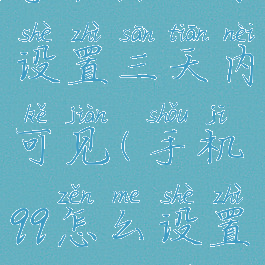 shè zhì sān tiān nèi
设置三天内
kě jiàn shǒu jī
可见(手机
zěn me shè zhì
qq怎么设置